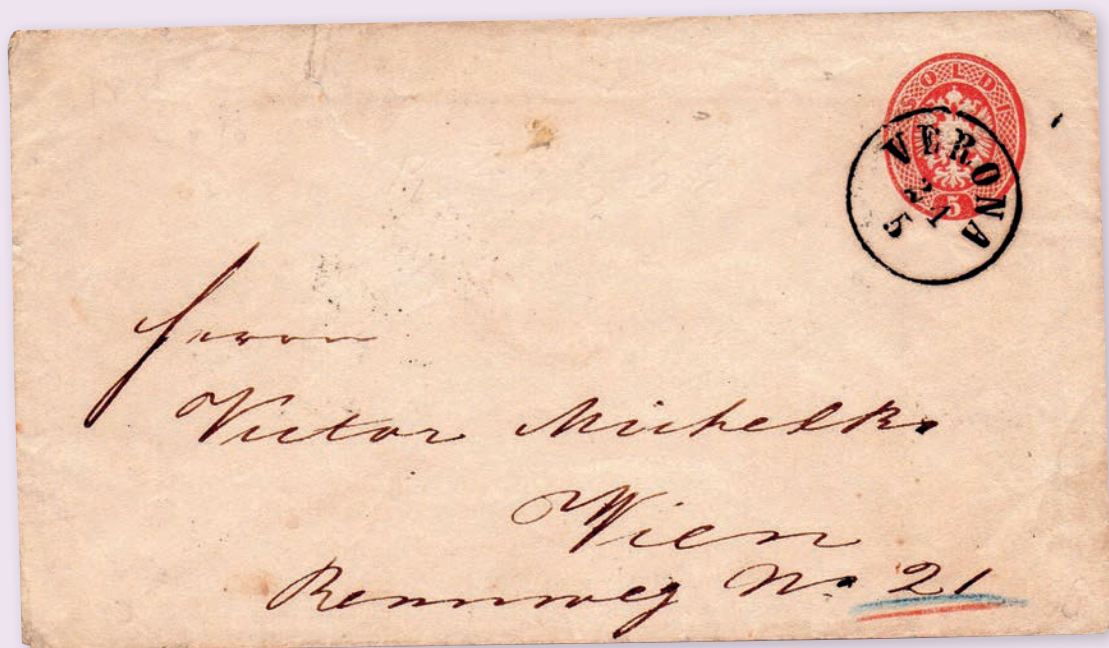 SOLDI
5
VERONA
21
5
Herrn
Victor Michelk
Wien
Rennweg No 21